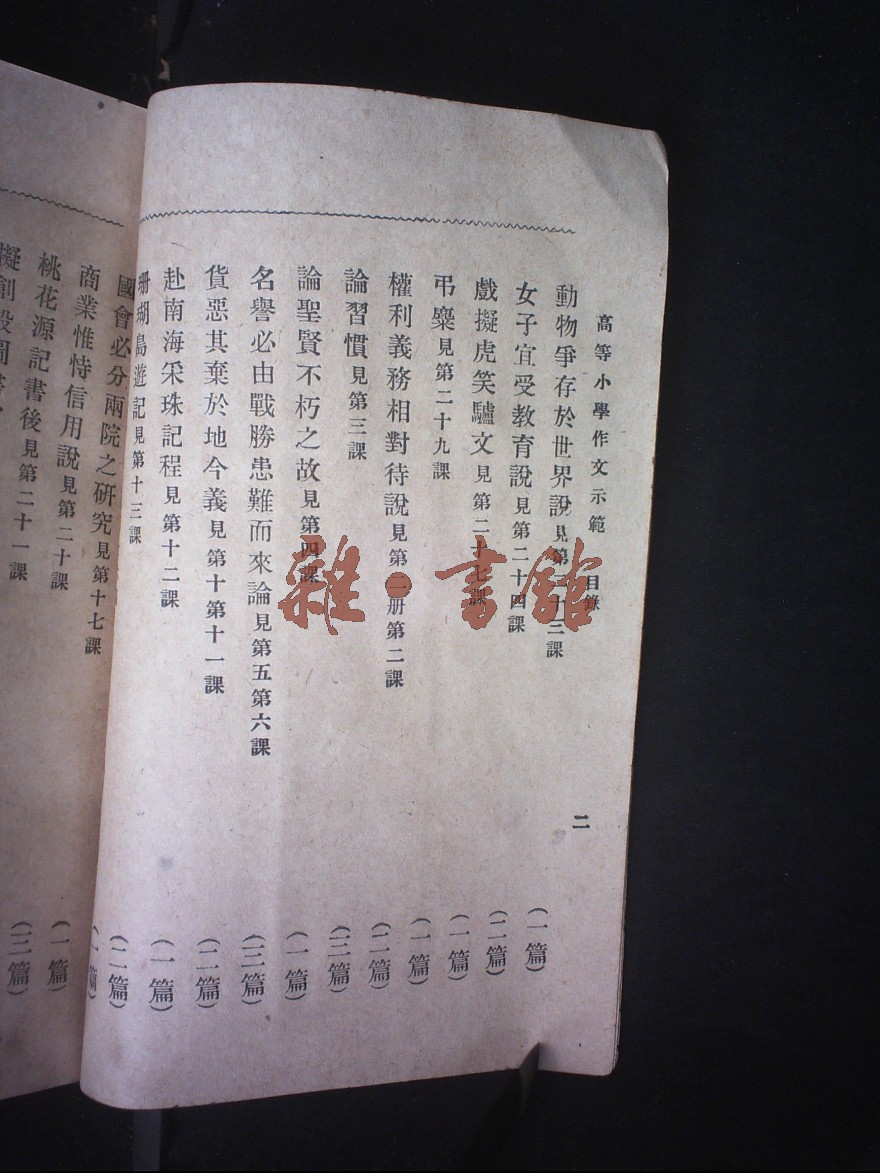 高等小學作文示範 目錄 二
動物爭存於世界說見第二十三課 (一篇)
女子宜受教育說見第二十四課 (二篇)
戲擬虎笑驢文見第二十七課 (一篇)
弔麋見第二十九課 (一篇)
權利義務相對待說見第一册第二課 (二篇)
論習慣見第三課 (三篇)
論聖賢不朽之故見第四課 (一篇)
名譽必由戰勝患難而來論見第五第六課 (三篇)
貨惡其棄於地今義見第十第十一課 (二篇)
赴南海采珠記程見第十二課 (一篇)
珊瑚島遊記見第十三課 (二篇)
國會必分兩院之研究見第十七課 (一篇)
商業惟恃信用說見第二十課 (一篇)
桃花源記書後見第二十一課 (三篇)
擬創設圖書
雜·書館